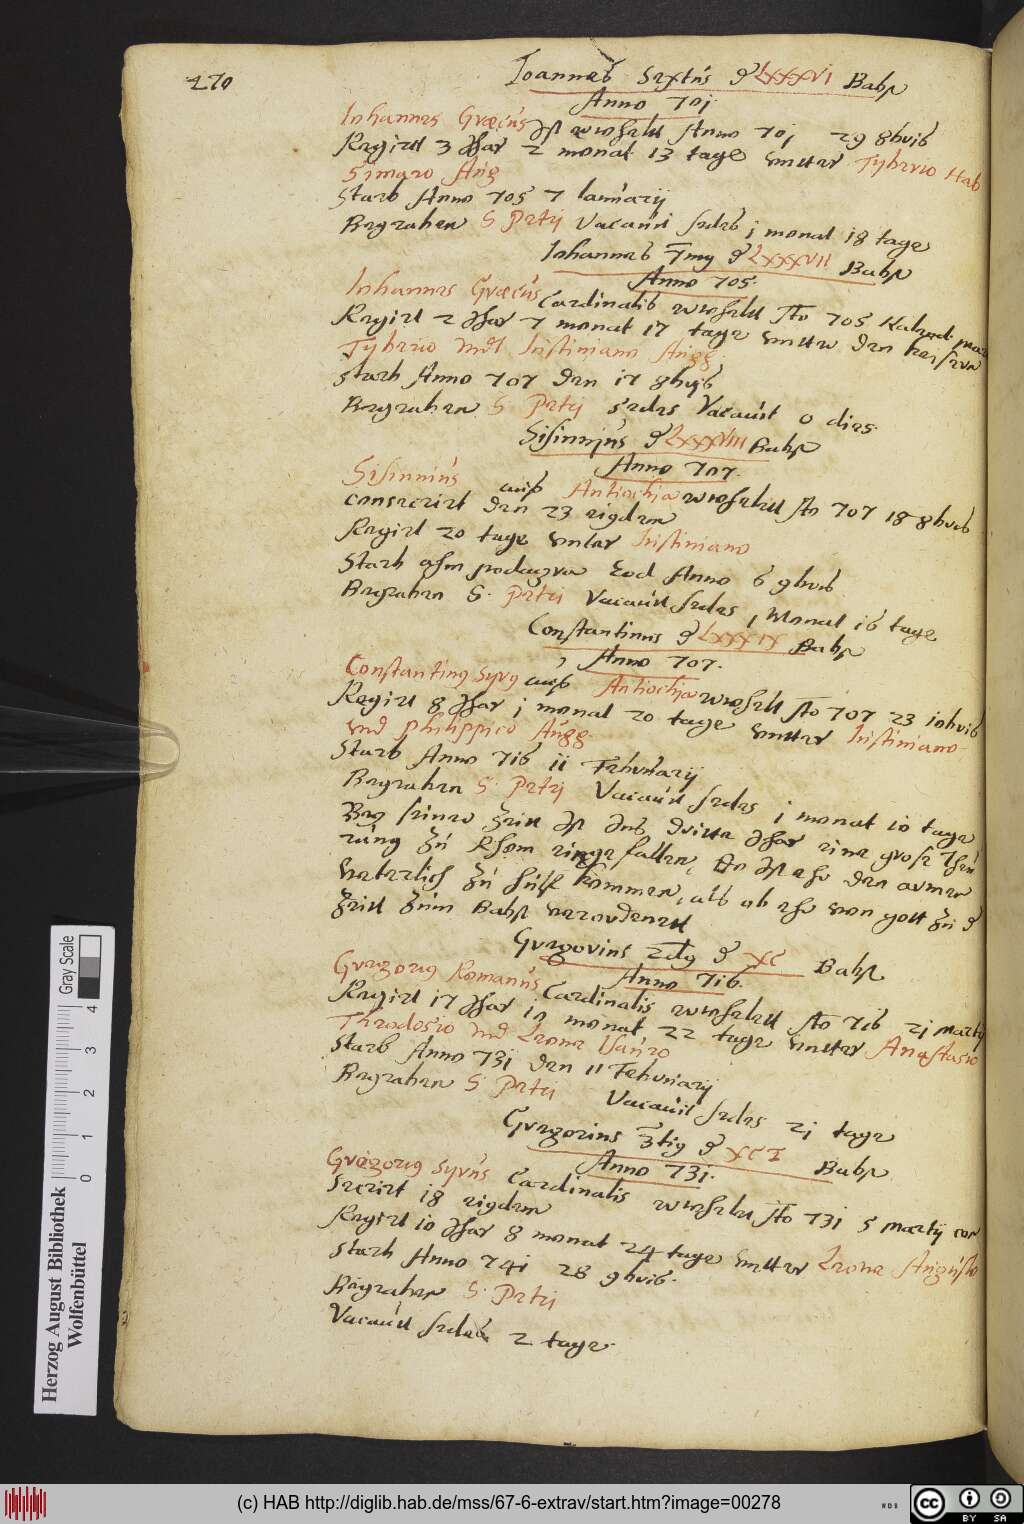 270
Joannes Sextus d LXXXVI Babst
Anno 701
Johannes Græcus Ist erwehelett Anno 701 29 8bris
Regirtt 3 Jhar 2 monat 13 tage vntter Tyberio
Simaro Aug
Starb Anno 705 7 Januarij
Begraben S Petrj Vacauit sedes 1 monat 18 tage
Johannes 7mg d LXXXVII Babst
Anno 705.
Johannes Græcus Cardinalis erwehelett Ao 705
Regirt 2 Jhar 7 monat 17 tage vntter den keisern
Tyberio vnd Justiniano Augg
Starb Anno 707 den 17 8bris
Begraben S Petrj Sedes Vacauit 0 dies.
Sisinnius d LXXXVIII Babst
Anno 707.
Sisinnius aus Antiochia erwehelett Ao 707 18 8bris
consecrirt den 23 eigdem
Regirt 20 tage vnter Justiniano
Starb ahm podagra Tod Anno 6 9bris
Begraben S. Petri Vacauit sedes 1 Monat 16 tage
Constantinus d LXXXIX Babst
Anno 707.
Constantinus Syrus aus Antiochia erwehelett Ao 707 23 10bris
Regirt 8 Jhar 1 monat 20 tage vntter Justiniano
vnd Philippico Augg.
Starb Anno 716 11 Februarij
Begraben S. Petrj Vacauit sedes 1 monat 10 tage
Bey seiner Zeitt Ist Ins dritte Jhar eine grose Theu
rung Zu Rhom eingefallen, Do Ist ehr den armen
veterlich Zu hülf kommen, als ob ehr von gott Zu d
Zeitt Zum Babst verordenett
Gregorius 2dg d XC Babst
Anno 716.
Gregorius Romanus Cardinalis erwehelett Ao 716 21 martij
Regirt 17 Jhar 10 monat 22 tage vntter Anastasio
Theodosio vnd Leone Isauro
Starb Anno 731 den 11 Februarij
Begraben S Petri Vacauit sedes 21 tage
Gregorius 3tig d XCI Babst
Anno 731.
Gregorius Syrus Cardinalis erwehelett Ao 731 5 Martij con
secrirt 18 eigdem
Regirt 10 Jhar 8 monat 24 tage vntter Leone Augusto
Starb Anno 741 28 9bris.
Begraben S. Petrj
Vacauit sedes 2 tage.
Herzog August Bibliothek
Wolfenbüttel
0 1 2 3 4
Gray Scale
(c) HAB http://diglib.hab.de/mss/67-6-extrav/start.htm?image=00278
WDB
CC BY SA